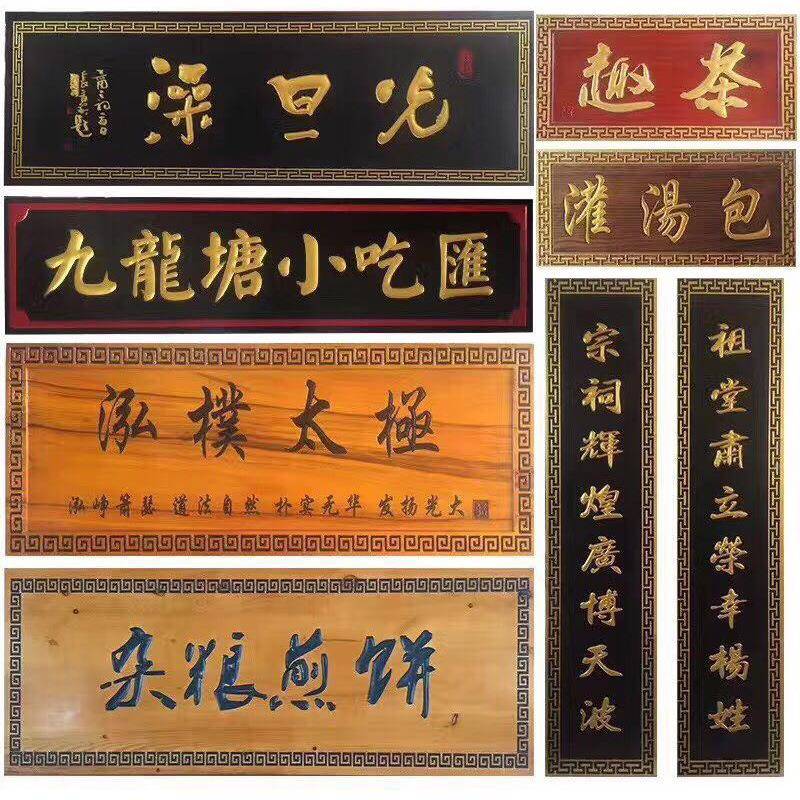 旦光
趣茶
灌湯包
九龍塘小吃匯
泓樸太極
泓峥箫瑟 道法自然 朴实无华 发扬光大
杂粮煎饼
祖堂肅立榮幸楊姓
宗祠輝煌廣博天波